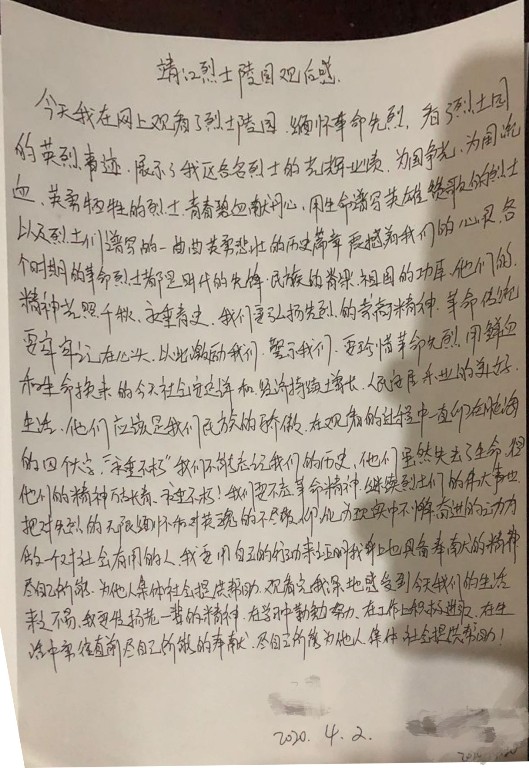 靖江烈士陵园观后感.
今天我在网上观看了烈士陵园、缅怀革命先烈, 看了烈士园
的英烈事迹. 展示了我区各名烈士的光辉业绩. 为国争光、为国流
血、英勇牺牲的烈士. 青春碧血献丹心、用生命谱写英雄赞歌的烈士
以及烈士们谱写的一曲曲英勇悲壮的历史篇章 震撼着我们的心灵. 各
个时期的革命烈士都是时代的先锋. 民族的脊梁. 祖国的功臣. 他们的.
精神光照千秋. 永垂青史. 我们要弘扬先烈的崇高精神. 革命传统
要牢牢记在心头. 以此激励我们. 警示我们. 要珍惜革命先烈. 用鲜血
和生命换来的今天社会安定详和 经济持续增长. 人民安居乐业的美好.
生活. 他们应该是我们民族的骄傲. 在观看的过程中一直印在脑海
的四个大字. "永垂不朽" 我们不能忘记我们的历史. 他们虽然失去了生命. 但
他们的精神万古长青. 永垂不朽! 我们要不忘革命精神. 继续烈士们的伟大事业
把对先烈的无限缅怀和对英魂的不尽敬仰. 化为现实中不懈奋进的动力
做一个对社会有用的人. 我要用自己的行动来证明我身上也具备奉献的精神
尽自己所能. 为他人集体社会提供帮助. 观看完我深地感受到今天我们的生活
来之不易. 我要发扬先一辈的精神. 在学习中勤勉努力. 在工作上积极进取. 在生
活中勇往直前尽自己所能的奉献. 尽自己所能为他人集体 社会提供帮助!
2020. 4. 2.